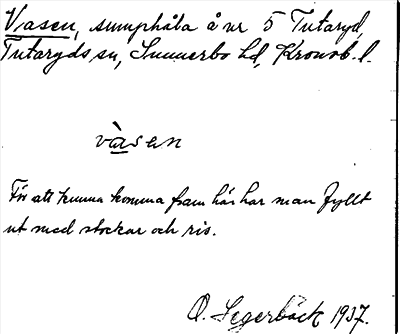 Vasen, sumphåla å nr 5 Tutaryd,
Tutaryds sn, Sunnerbo hd, Kronob. l.
vàsen
För att kunna komma fram här har man fyllt
ut med stockar och ris.
O. Segerbäck 1937.